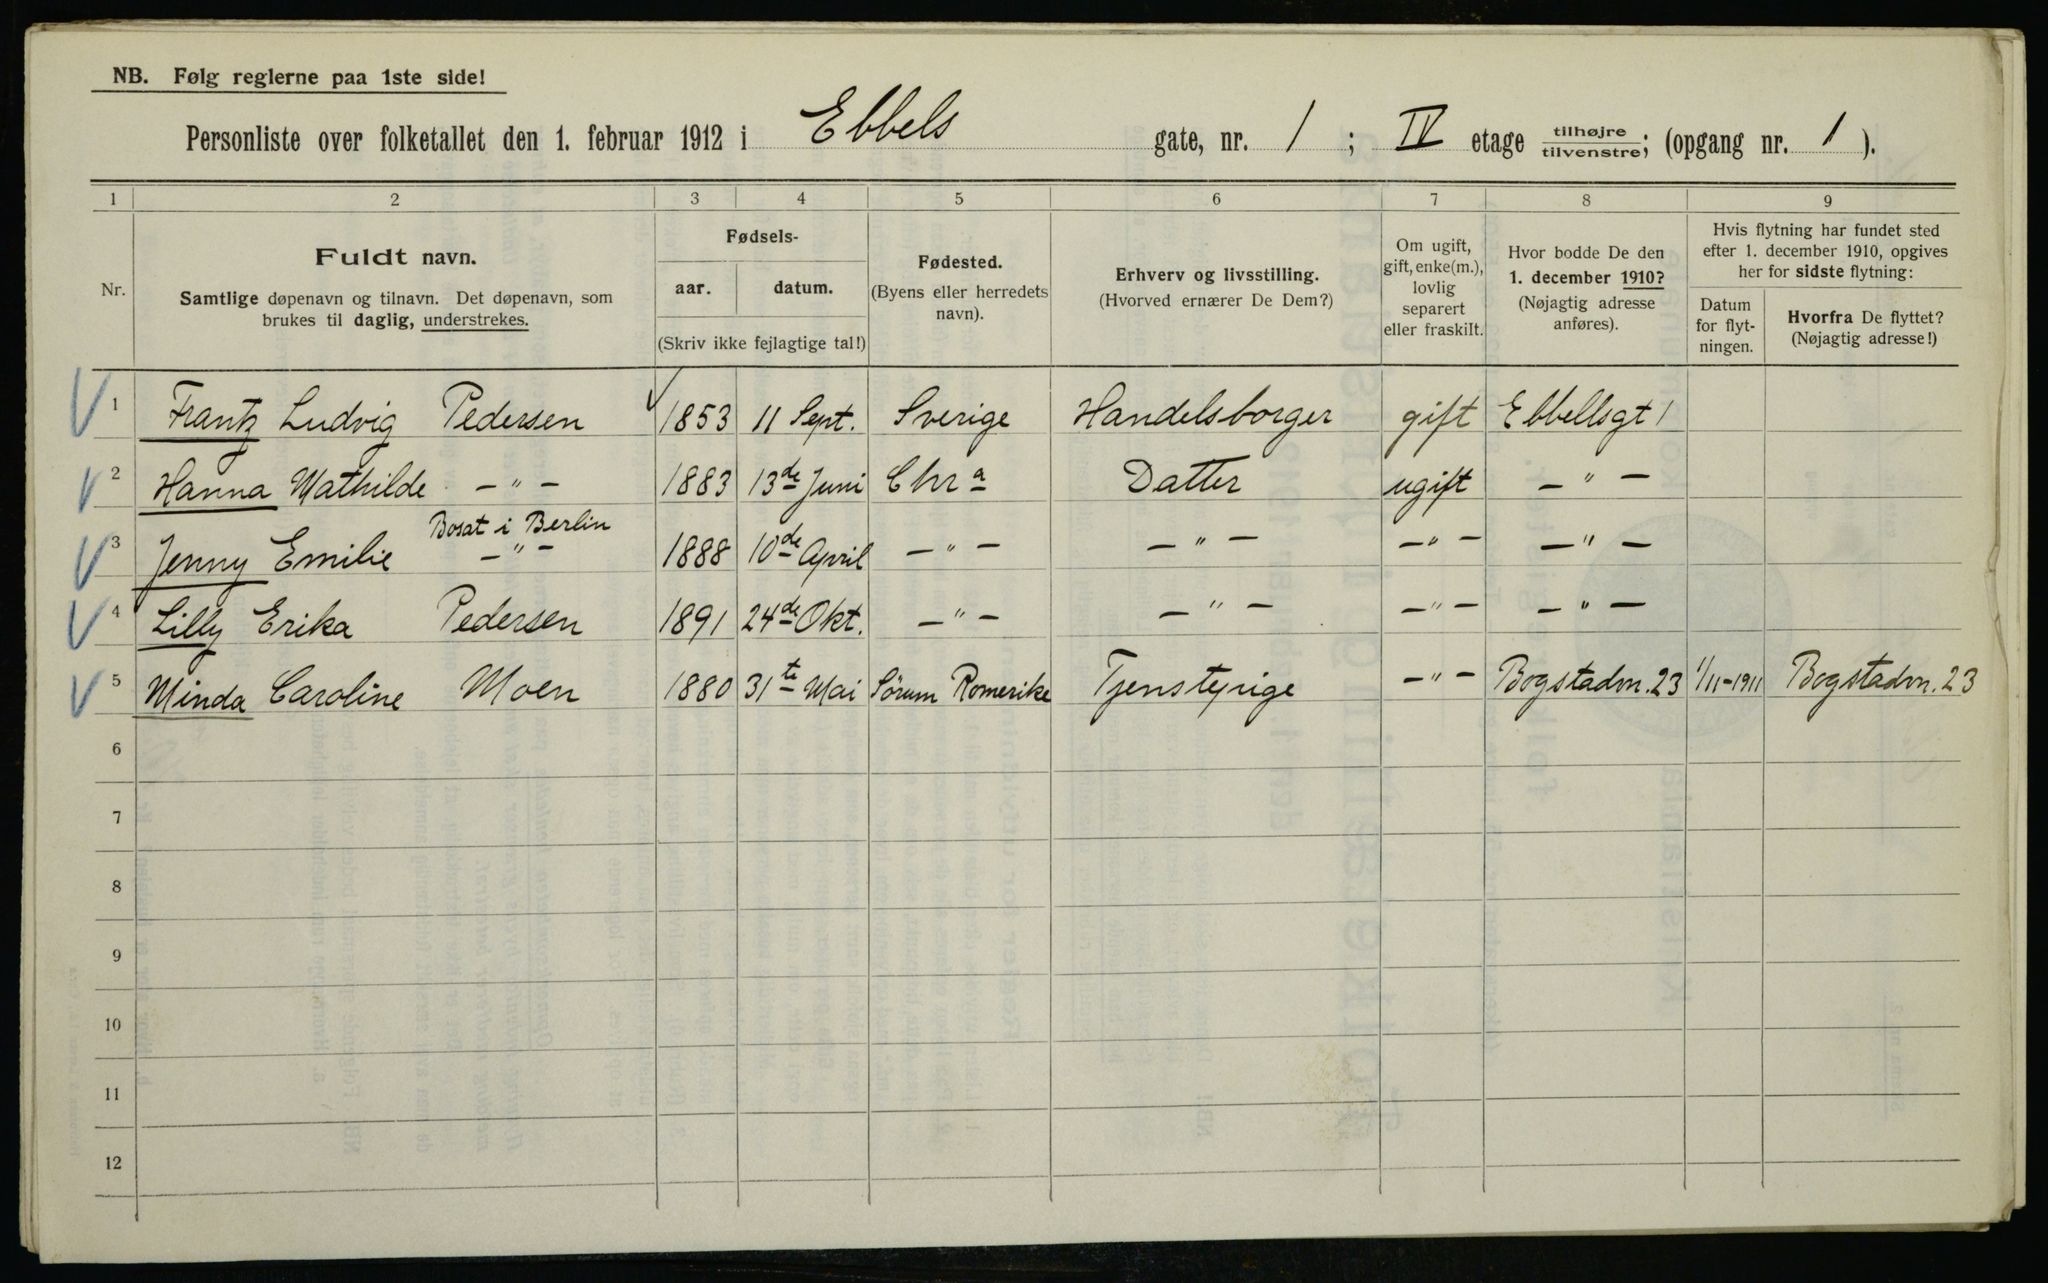 NB. Følg reglerne paa 1ste side!
Personliste over folketallet den 1. februar 1912 i Ebbels gate, nr. 1 ; IV etage tilhøjre/tilvenstre; (opgang nr. 1 ).
1 2 3 4 5 6 7 8 9
Nr.
Fuldt navn.
Samtlige døpenavn og tilnavn. Det døpenavn, som
brukes til daglig, understrekes.
Fødsels-
aar. datum.
(Skriv ikke fejlagtige tal!)
Fødested.
(Byens eller herredets
navn).
Erhverv og livsstilling.
(Hvorved ernærer De Dem?)
Om ugift,
gift, enke(m.),
lovlig
separert
eller fraskilt.
Hvor bodde De den
1. december 1910?
(Nøjagtig adresse
anføres).
Hvis flytning har fundet sted
efter 1. december 1910, opgives
her for sidste flytning:
Datum
for flyt-
ningen.
Hvorfra De flyttet?
(Nøjagtig adresse!)
1 Frantz Ludvig Pedersen 1853 11 Sept. Sverige Handelsborger gift Ebbellsgt 1
2 Hanna Mathilde — " — 1883 13de Juni Chra Datter ugift — " —
Bosat i Berlin
3 Jenny Emilie — " — 1888 10de April — " — — " — — " — — " —
4 Lilly Erika Pedersen 1891 24de Okt. — " — — " — — " — — " —
5 Minda Caroline Moen 1880 31te Mai Sörum Romerike Tjenstepige — " — Bogstadvn. 23 1/11-1911 Bogstadvn. 23
6
7
8
9
10
11
12